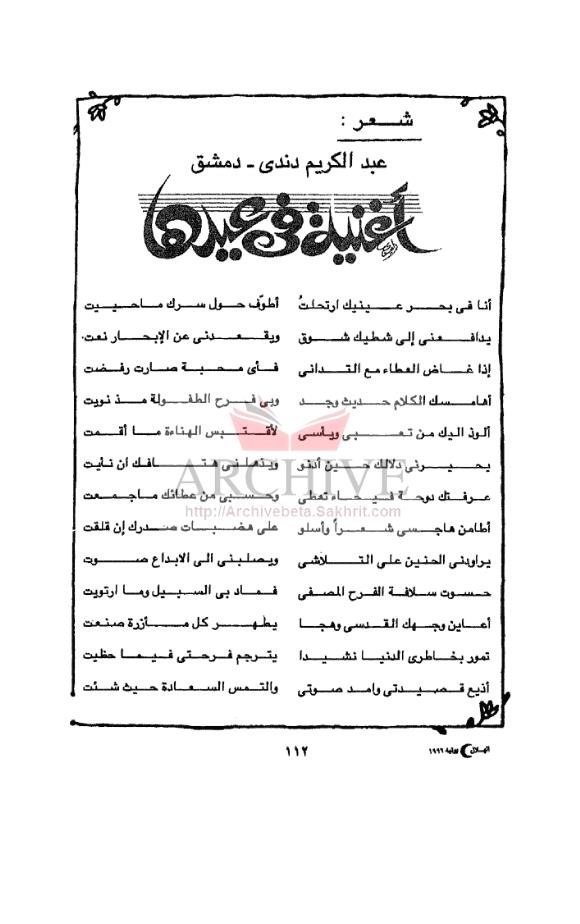 شعر :
عبد الكريم دندى - دمشق
أغنية فى عيدها
أنا فى بحر عينيك ارتحلتُ أطوّف حول سرك ماحييت
يدافعنى إلى شطيك شوق ويقعدنى عن الإبحار نعت
إذا غاض العطاء مع التدانى فأى محبة صارت رفضت
أهامسك الكلام حديث وجد وبى فرح الطفولة مذ نويت
ألوذ اليك من تعبى ويأسى لأقتبس الهناءة ما أقمت
يحيرنى دلالك حين أدنو ويذهلنى هتافك ان نأيت
عرفتك دوحة فيحاء تعطى وحسبى من عطائك ماجمعت
أطامن هاجسى شعراً وأسلو على هضبات صدرك إن قلقت
يراودنى الحنين على التلاشى ويصلبنى الى الابداع صوت
حسوت سلافة الفرح المصفى فماد بى السبيل وما ارتويت
أعاين وجهك القدسى وهجا يطهر كل مأزرة صنعت
تمور بخاطرى الدنيا نشيدا يترجم فرحتى فيما حظيت
أذيع قصيدتى وامد صوتى والتمس السعادة حيث شئت
ARCHIVE
http://Archivebeta.Sakhrit.com
١١٢
الهلال ١٩٩٦